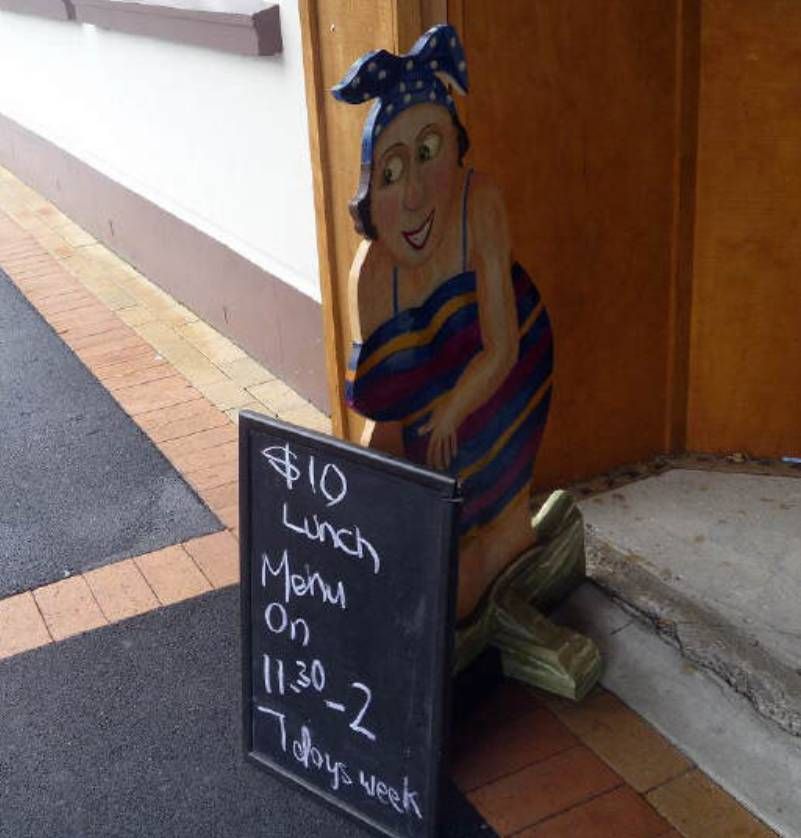 $10
Lunch
Menu
On
11.30-2
7 days week